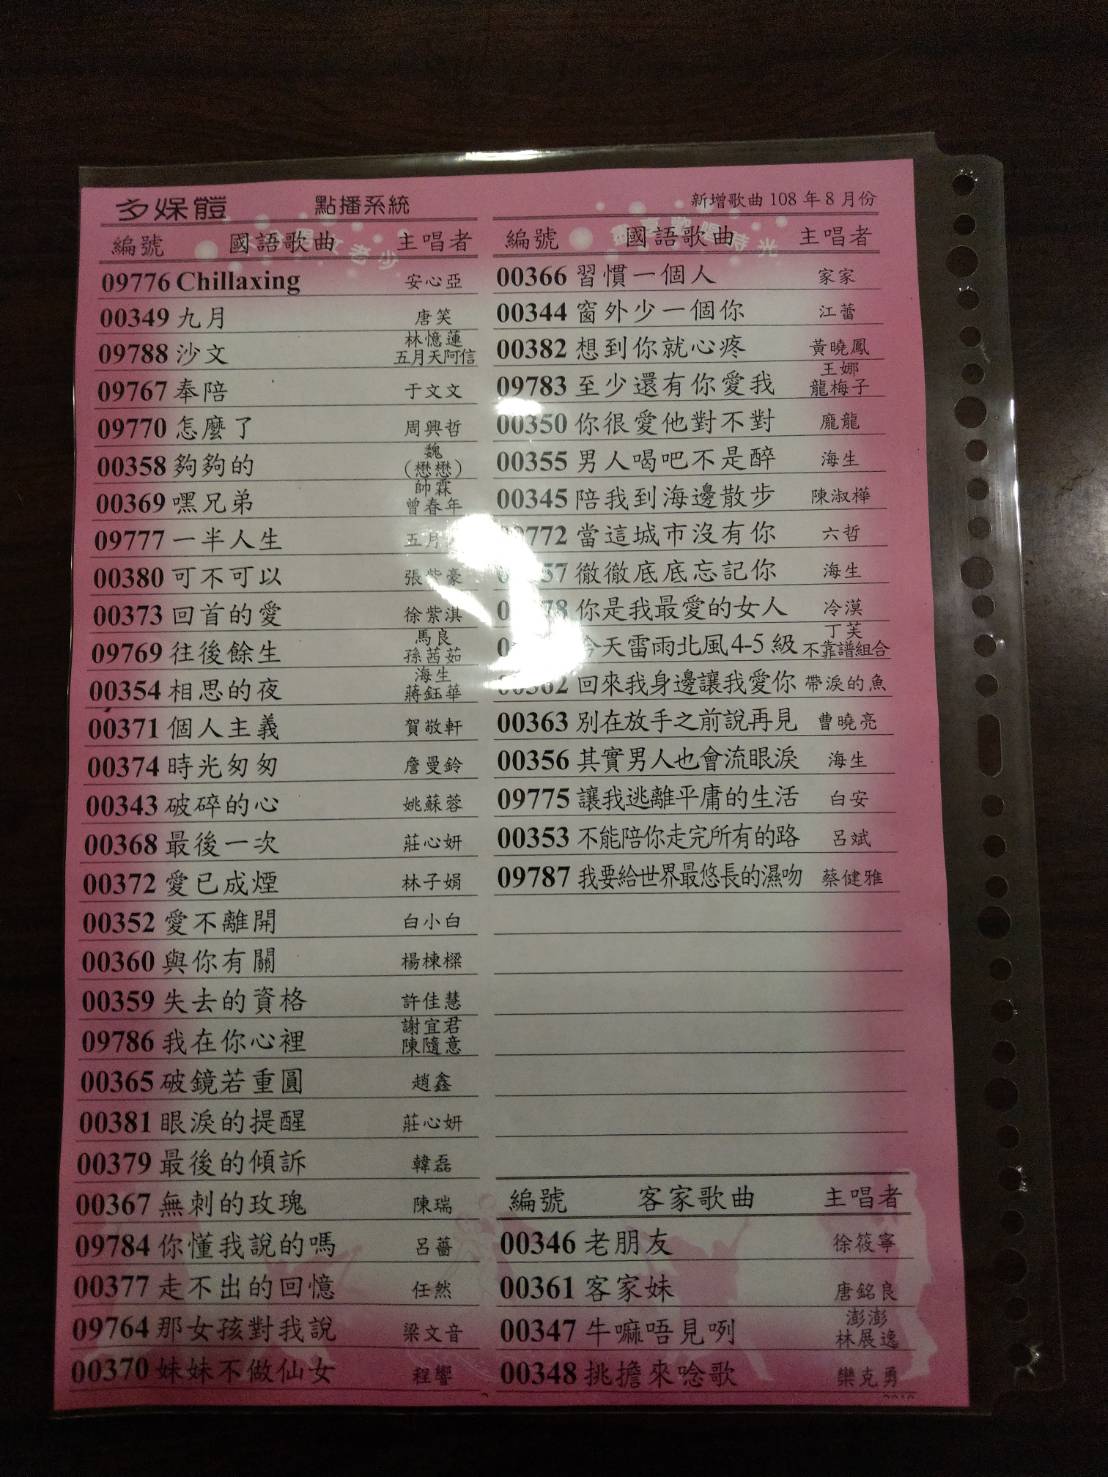 多媒體 點播系統
新增歌曲 108 年 8 月份
編號 國語歌曲 主唱者
09776 Chillaxing 安心亞
00349 九月 唐笑
09788 沙文 林憶蓮 五月天阿信
09767 奉陪 于文文
09770 怎麼了 周興哲
00358 夠夠的 魏(懋懋)
00369 嘿兄弟 帥霖 曾春年
09777 一半人生 五月
00380 可不可以 張紫豪
00373 回首的愛 徐紫淇
09769 往後餘生 馬良 孫茜茹
00354 相思的夜 海生 蔣鈺華
00371 個人主義 賀敬軒
00374 時光匆匆 詹曼鈴
00343 破碎的心 姚蘇蓉
00368 最後一次 莊心妍
00372 愛已成煙 林子娟
00352 愛不離開 白小白
00360 與你有關 楊棟樑
00359 失去的資格 許佳慧
09786 我在你心裡 謝宜君 陳隨意
00365 破鏡若重圓 趙鑫
00381 眼淚的提醒 莊心妍
00379 最後的傾訴 韓磊
00367 無刺的玫瑰 陳瑞
09784 你懂我說的嗎 呂薔
00377 走不出的回憶 任然
09764 那女孩對我說 梁文音
00370 妹妹不做仙女 程響
編號 國語歌曲 主唱者
00366 習慣一個人 家家
00344 窗外少一個你 江蕾
00382 想到你就心疼 黃曉鳳
09783 至少還有你愛我 王娜 龍梅子
00350 你很愛他對不對 龐龍
00355 男人喝吧不是醉 海生
00345 陪我到海邊散步 陳淑樺
772 當這城市沒有你 六哲
57 徹徹底底忘記你 海生
78 你是我最愛的女人 冷漠
今天雷雨北風4-5 級 丁芙 不靠譜組合
00362 回來我身邊讓我愛你 帶淚的魚
00363 別在放手之前說再見 曹曉亮
00356 其實男人也會流眼淚 海生
09775 讓我逃離平庸的生活 白安
00353 不能陪你走完所有的路 呂斌
09787 我要給世界最悠長的濕吻 蔡健雅
編號 客家歌曲 主唱者
00346 老朋友 徐筱寧
00361 客家妹 唐銘良
00347 牛嘛唔見咧 澎澎 林展逸
00348 挑擔來唸歌 欒克勇